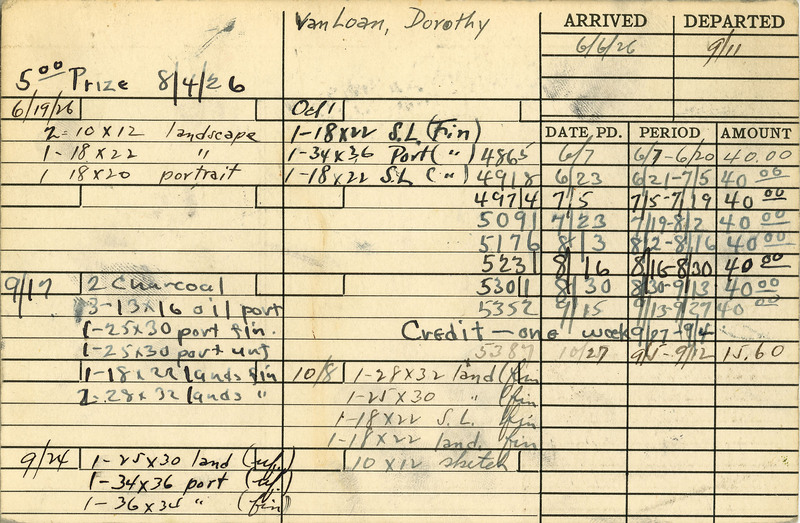 VanLoan, Dorothy
ARRIVED DEPARTED
6/6/26 9/11
5.00 Prize 8/4/26
6/19/26
2-10x12 landscape
1-18x22 "
1 18x20 portrait
Oct 1
1-18x22 S.L. (Fin)
1-34x36 Port (")
1-18x22 S.L. (")
DATE PD. PERIOD AMOUNT
4865 6/7 6/7-6/20 40.00
4918 6/23 6/21-7/5 40 00
4974 7/5 7/5-7/19 40 00
5091 7/23 7/19-8/2 40 00
5176 8/3 8/2-8/16 40 00
5231 8/16 8/16-8/30 40 00
5301 8/30 8/30-9/13 40 00
5352 9/15 9/13-9/27 40 00
Credit - one week 9/27-9/4
5387 10/27 9/5-9/12 15.60
9/17
2 Charcoal
3-13x16 oil port
1-25x30 port fin.
1-25x30 port unf
1-18x22 lands fin
2-28x32 lands "
9/24
1-25x30 land (uf)
1-34x36 port (uf)
1-36x34 " (fin)
10/8
1-28x32 land (fin
1-25x30 " (fin
1-18x22 S.L. (fin
1-18x22 land. fin
10x12 sketch